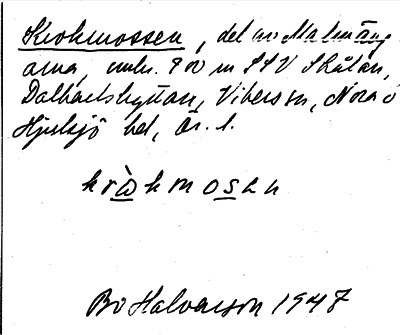 Krokmossen, del av Malmäng
arna, omkr. 900 m SSV Skålan,
Dalkarlshyttan, Vibers sn, Nora o
Hjulsjö bgl, Ör. l.
kròkmosen
Bo Halvarson 1947